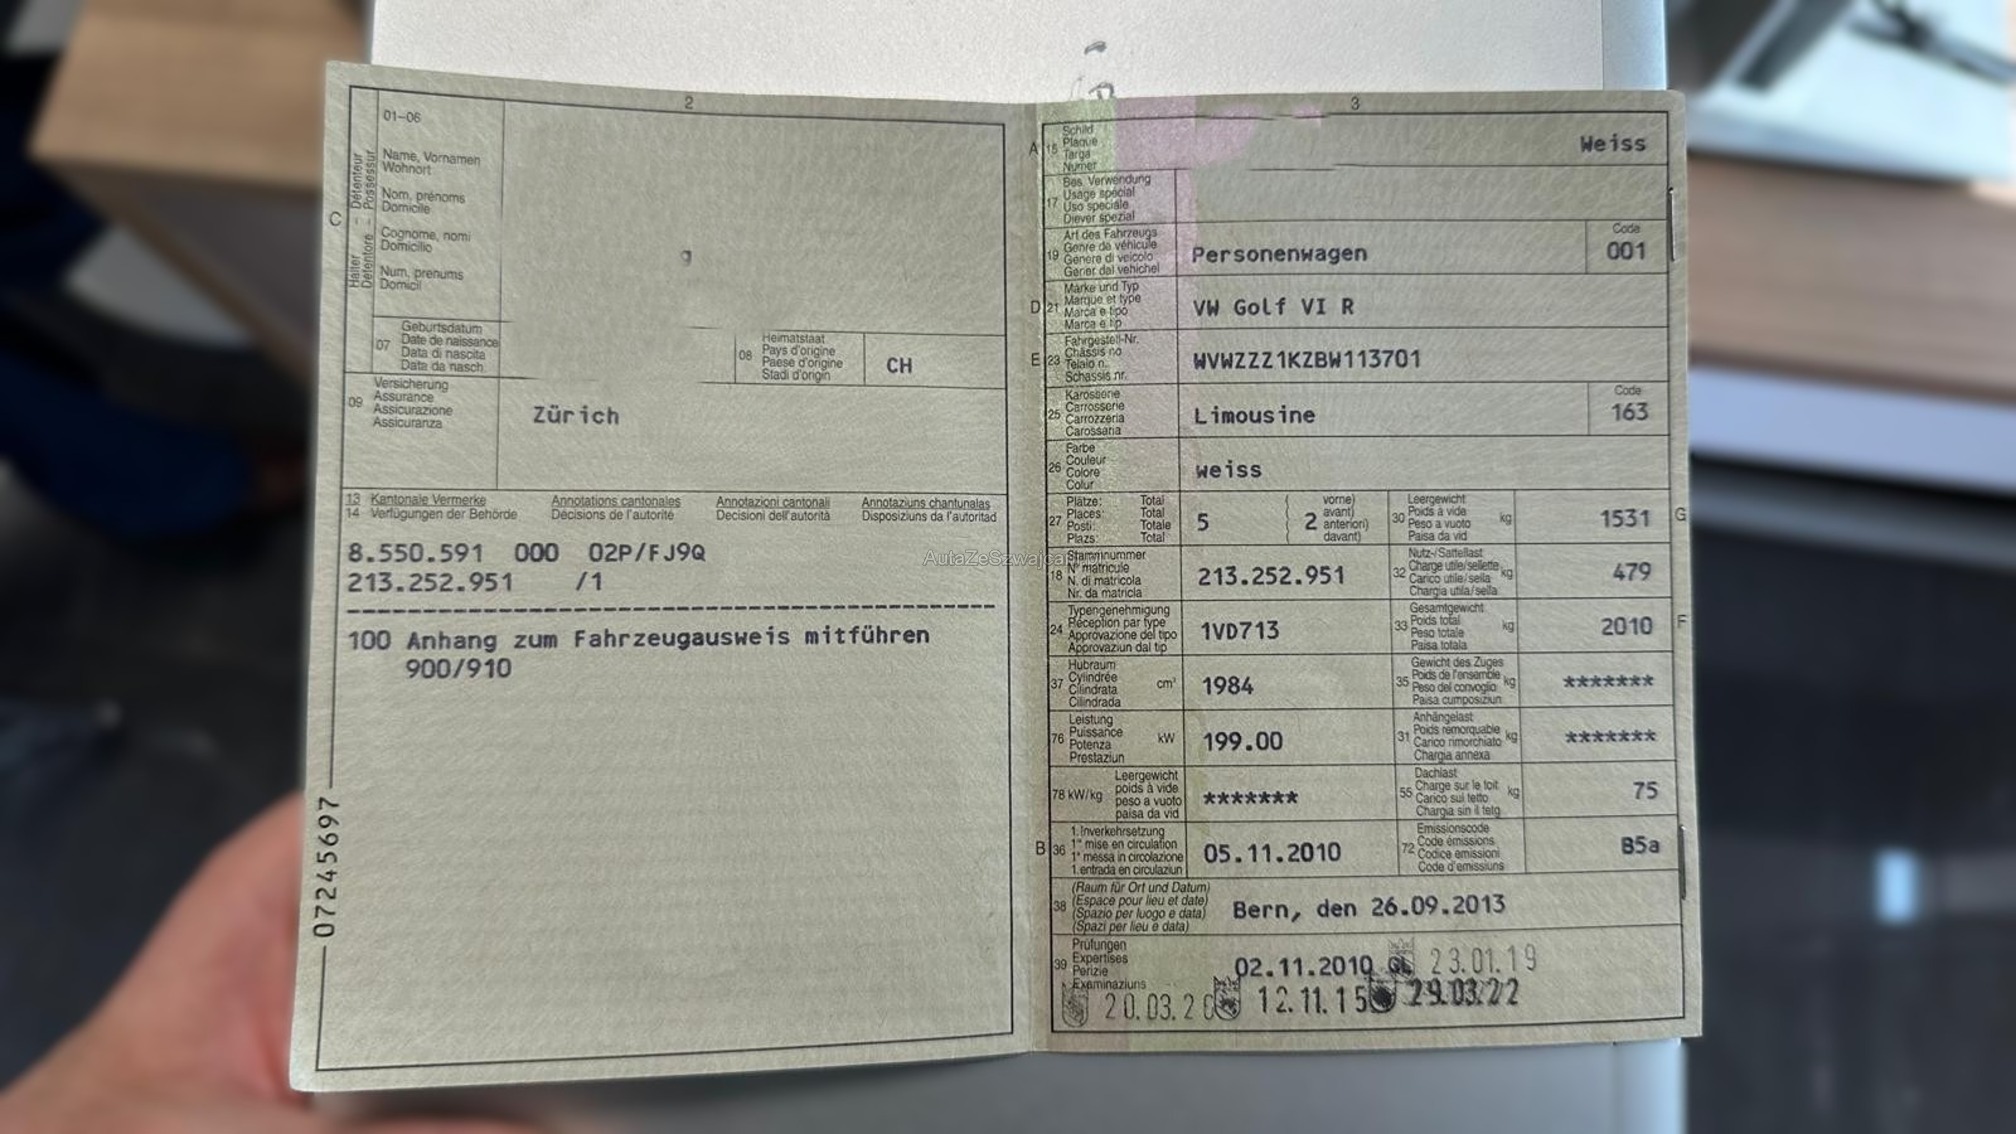 2
01-06
Halter - Détenteur
Detentore - Possessur
C
Name, Vornamen
Wohnort
Nom, prénoms
Domicile
Cognome, nomi
Domicilio
Num, prenums
Domicil
g
07
Geburtsdatum
Date de naissance
Data di nascita
Data da nasch.
08
Heimatstaat
Pays d'origine
Paese d'origine
Stadi d'origin
CH
09
Versicherung
Assurance
Assicurazione
Assicuranza
Zürich
13 Kantonale Vermerke Annotations cantonales Annotazioni cantonali Annotaziuns chantunalas
14 Verfügungen der Behörde Décisions de l'autorité Decisioni dell'autorità Disposiziuns da l'autoritad
8.550.591 000 02P/FJ9Q
213.252.951 /1
100 Anhang zum Fahrzeugausweis mitführen
900/910
07245697
AutaZeSzwajcarii
3
A 15
Schild
Plaque
Targa
Numer
Weiss
17
Bes. Verwendung
Usage spécial
Uso speciale
Diever spezial
19
Art des Fahrzeugs
Genre de véhicule
Genere di veicolo
Gener dal vehichel
Personenwagen
Code
001
D 21
Marke und Typ
Marque et type
Marca e tipo
Marca e tip
VW Golf VI R
E 23
Fahrgestell-Nr.
Châssis no
Telaio n.
Schassis nr.
WVWZZZ1KZBW113701
25
Karosserie
Carrosserie
Carrozzeria
Carossaria
Limousine
Code
163
26
Farbe
Couleur
Colore
Colur
weiss
27
Plätze: Total
Places: Total
Posti: Totale
Plazs: Total
5
2
vorne)
avant)
anteriori)
davant)
30
Leergewicht
Poids à vide
Peso a vuoto
Paisa da vid
kg
1531
G
18
Stammnummer
N° matricule
N. di matricola
Nr. da matricla
213.252.951
32
Nutz-/Sattellast
Charge utile/sellette
Carico utile/sella
Chargia utila/sella
kg
479
24
Typengenehmigung
Réception par type
Approvazione del tipo
Approvaziun dal tip
1VD713
33
Gesamtgewicht
Poids total
Peso totale
Paisa totala
kg
2010
F
37
Hubraum
Cylindrée
Cilindrata
Cilindrada
cm³
1984
35
Gewicht des Zuges
Poids de l'ensemble
Peso del convoglio
Paisa cumposiziun
kg
*******
76
Leistung
Puissance
Potenza
Prestaziun
kW
199.00
31
Anhängelast
Poids remorquable
Carico rimorchiato
Chargia annexa
kg
*******
78 kW/kg
Leergewicht
poids à vide
peso a vuoto
paisa da vid
*******
55
Dachlast
Charge sur le toit
Carico sul tetto
Chargia sin il tetg
kg
75
B 36
1. Inverkehrsetzung
1re mise en circulation
1a messa in circolazione
1. entrada en circulaziun
05.11.2010
72
Emissionscode
Code émissions
Codice emissioni
Code d'emissiuns
B5a
38
(Raum für Ort und Datum)
(Espace pour lieu et date)
(Spazio per luogo e data)
(Spazi per lieu e data)
Bern, den 26.09.2013
39
Prüfungen
Expertises
Perizie
Examinaziuns
02.11.2010 GL 23.01.19
20.03.20 12.11.15 29.03.22